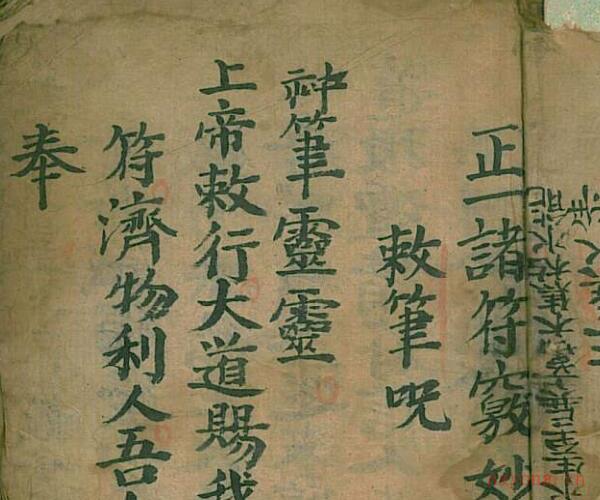 正一諸符竅妙
敕筆呪
神筆靈靈
上帝敕行大道賜我
符濟物利人吾
奉